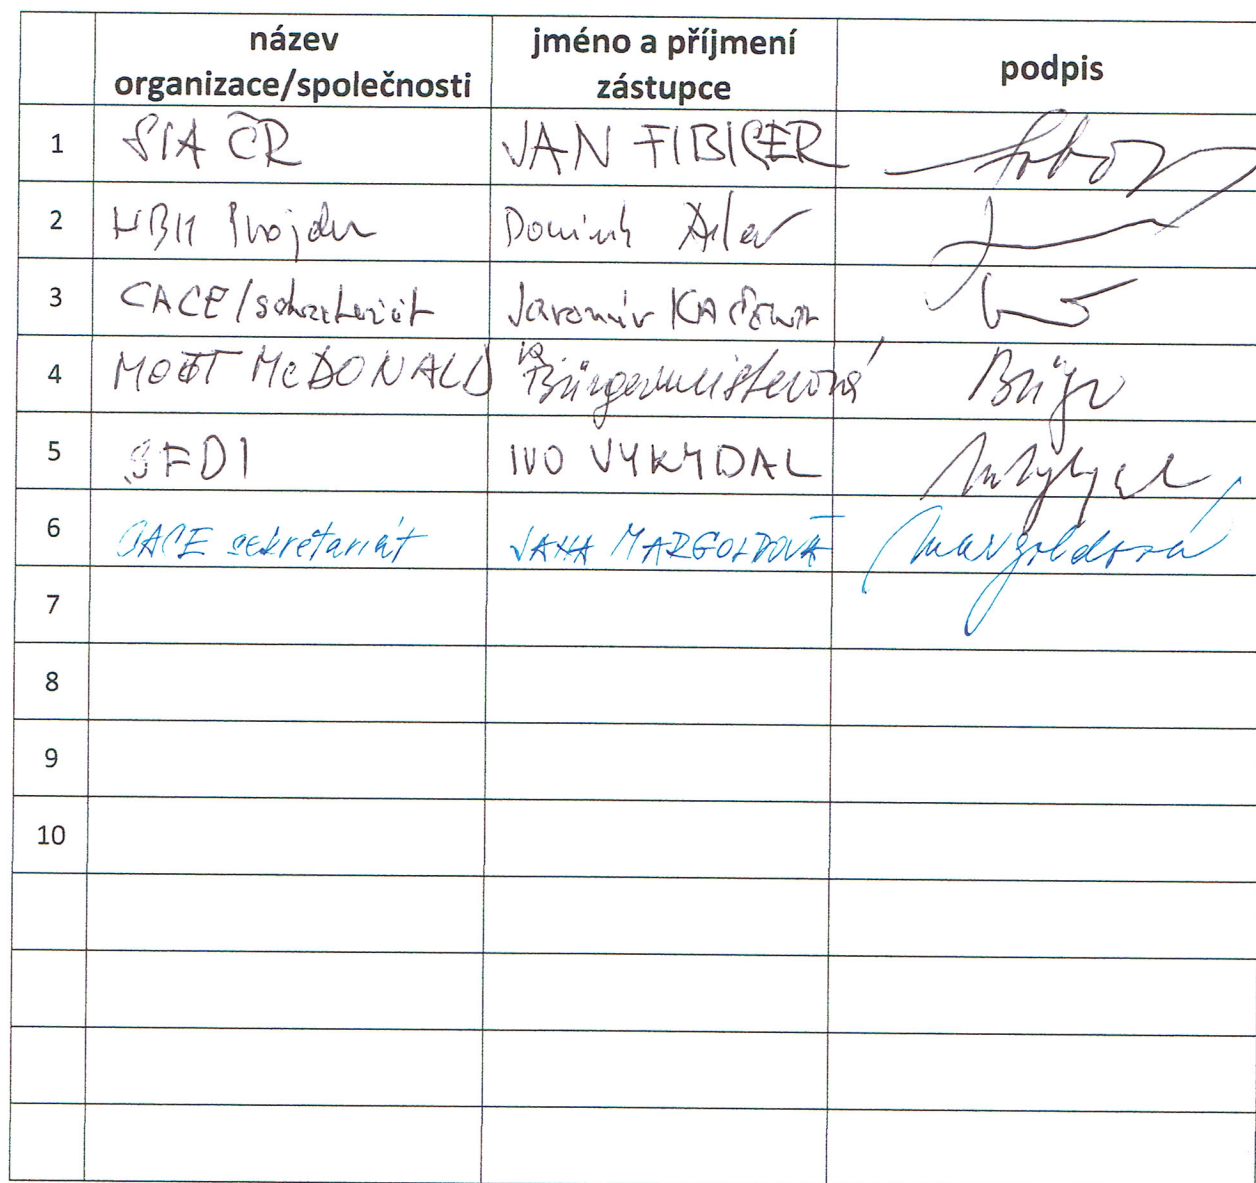 název organizace/společnosti jméno a příjmení zástupce podpis
1 SIA ČR JAN FIBIGER
2 Dominik
3 CACE/sekretariát Jaromír
4 MOTT McDONALD Bürgermeisterová
5 SFDI IVO VYKYDAL
6 CACE sekretariát JANA MARGOLDOVÁ Margoldová
7
8
9
10